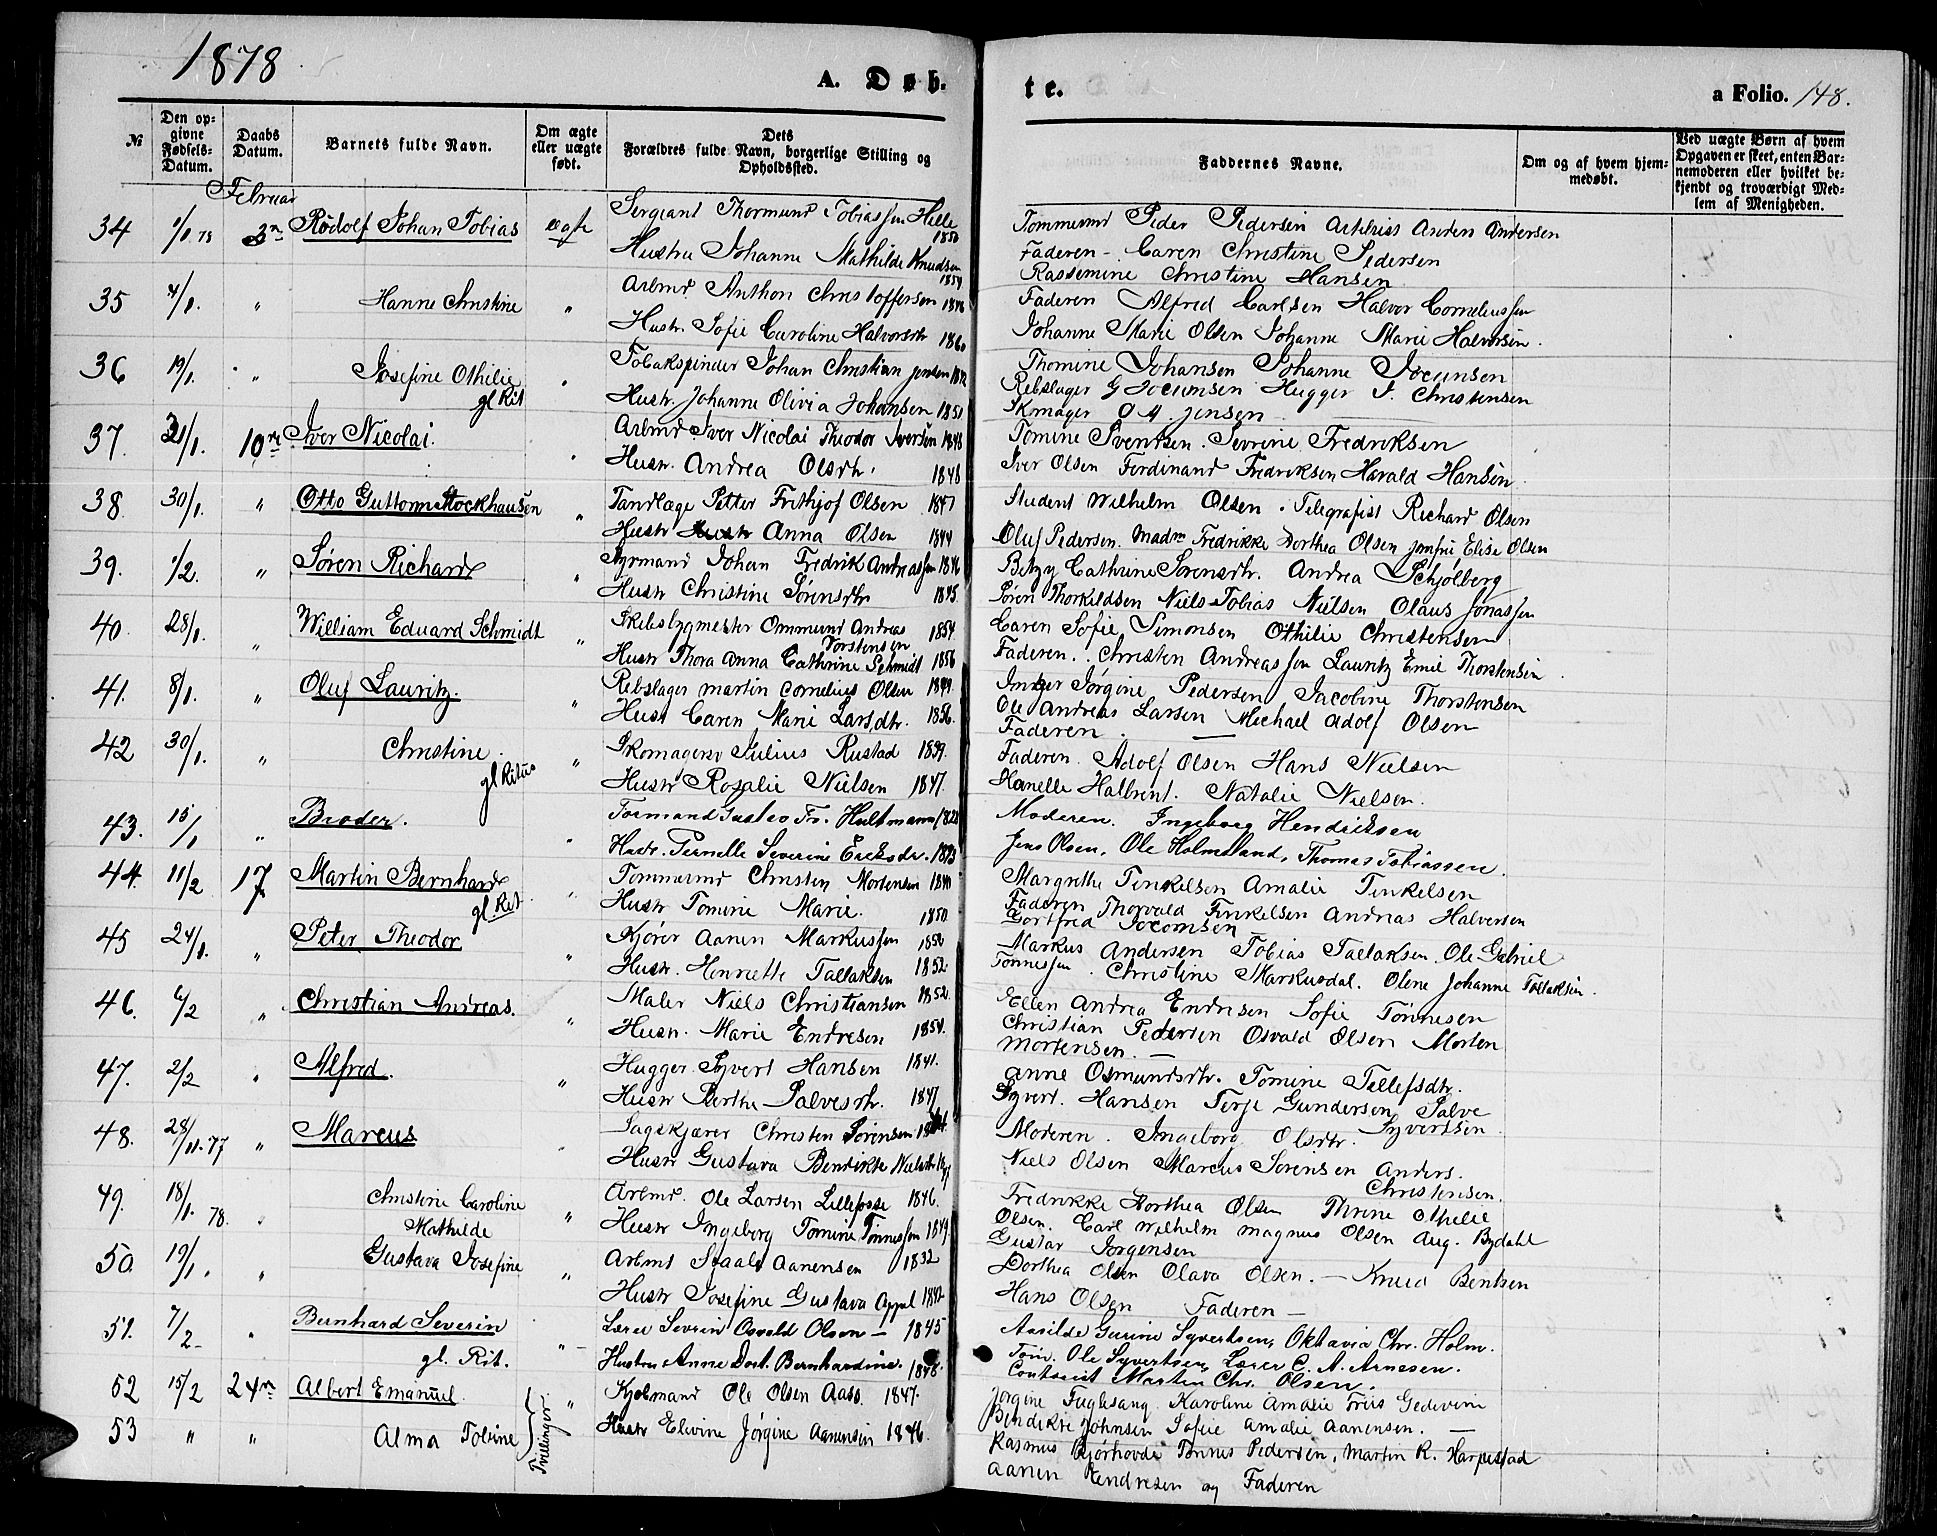 1878
A. Døb-
te.
a Folio. 148.
№
Den opgivne Fødsels-Datum.
Daabs Datum.
Barnets fulde Navn.
Om ægte eller uægte født.
Dets Forældres fulde Navn, borgerlige Stilling og Opholdssted.
Faddernes Navne.
Om og af hvem hjemmedøbt.
Ved uægte Børn af hvem Opgaven er skeet, enten Barnemoderen eller hvilket bekjendt og troværdigt Medlem af Menigheden.
Februar
34 1/1 78 3n Rudolf Johan Tobias ægte Sergeant Thormund Tobiassen Helle 1850
Hustru Johanne Mathilde Knudsen 1854
Tommermd Peder Pedersen Anders Andersen
Faderen - Caren Christine Pedersen
Rassemine Christine Hansen
35 4/1. " Hanne Christine " Arbmd Anthon Christoffersen 1846
Hustr. Sofie Caroline Halvorsdtr 1860
Faderen Alfred Carlsen Halvor Corneliussen
Johanne Marie Olsen Johanne Marie Halvorsen.
36 19/1. " Josefine Othilie gl Rit " Tobakspinder Johan Christian Jensen
Hustr. Johanne Olivia Johansen 1851
Thomine Johansen Johanne Jocumsen
Rebslager G Jocumsen Hugger J. Christensen
Skmager O A. Jensen
37. 21/1. 10ne Iver Nicolai. " Arbmd Iver Nicolai Theodor Iversen 1848
Hustr. Andrea Olsdtr. 1846
Tomine Svendsen. Sevrine Fredriksen
Iver Olsen Ferdinand Fredriksen Harald Hansen.
38. 30/1. " Otto Guttorm Stockhausen " Tandlæge Petter Frithjof Olsen 1847
Hustr Anna Olsen 1844
Student Wilhelm Olsen. Telegrafist Richard Olsen
Oluf Pedersen. Madm Fredrikke Dorthea Olsen Jomfru Elise Olsen
39. 1/2. " Søren Richard " Styrmand Johan Fredrik Andreassen 1846
Hustr Christine Sørensdtr 1845
Betzy Cathrine Sørensdtr. Andrea Schjølberg
Søren Thorkildsen Niels Tobias Nielsen Olaus Jonassen
40. 28/1. " William Eduard Schmidt " Skibsbygmester Ommund Andreas Torstensen 1854
Hustr Thora Anna Cathrine Schmidt 1856
Caren Sofie Simonsen Othilie Christensen
Faderen. Christen Andreassen Lauritz Emil Thorstensen
41. 8/1. " Oluf Lauritz. " Rebslager Martin Cornelius Olsen 1849.
Hustr Caren Marie Larsdtr. 1856.
Inger Jørgine Pedersen Jacobine Thorstensen
Ole Andreas Larsen Michael Adolf Olsen
Faderen.
42 30/1. " Christine. gl Ritus " Skomagersv Julius Rustad 1859.
Hustr Rosalie Nielsen 1847.
Faderen. Adolf Olsen Hans Nielsen
Hanelle Nathalie Nielsen.
43. 15/1 " Broder. " Formand Gustav Fr. Hultmann 1828
Hustr. Pernelle Severine Eriksdr.
Moderen. Ingeborg Hendriksen
Jens Olsen, Ole Holmesland, Thomas Tobiassen.
44. 11/2 17 Martin Bernhard gl. Rit " Tommermd Christen Mortensen 1840
Hustr Tomine Marie. 1850.
Margrethe Finkelsen Amalie Finkelsen
Faderen Thorvald Finkelsen Andreas Halversen
Gotfred Jocomsen
45 24/1. " Peter Theodor " Kjører Aanen Markussen 1850
Hustr. Henriette Tallaksen 1852
Markus Andersen Tobias Tallaksen. Ole Gabriel
Tønnessen. Christine Markusdal. Olene Johanne Tallaksen.
46. 6/2 " Christian Andreas. " Maler Niels Christiansen 1852.
Hustr. Marie Endresen 1854.
Ellen Andrea Endresen Sofie Tønnesen
Christian Pedersen Osvald Olsen Morten
Mortensen.
47. 2/2 " Alfred. " Hugger Syvert Hansen 1841.
Hustr Berthe Salvesdtr. 1847
Anne Osmundsdtr. Tomine Tellefsdtr.
Syvert. Hansen Terje Gundersen Salve
Syvertsen.
48. 28/11-77 " Marcus " Sagskjærer Christen Sørensen
Hustr Gustava Bendikte Nielsdtr
Moderen. Ingeborg Olsdtr.
Niels Olsen Marcus Sørensen Anders.
Christensen.
49. 18/1. 78. " Christine Caroline Mathilde " Arbmd. Ole Larsen Lillefosse 1846.
Hustr Ingeborg Tomine Tønnessen 1849.
Fredrikke Dorthea Olsen Thrine Othelie
Olsen. Carl Wilhelm Magnus Olsen Aug. Bydahl
Gustav Jørgensen
50. 19/1. " Gustava Josefine " Arbmd Staale Aanensen 1832
Hustr Josefine Gustava Appel
Dorthea Olsen Olava Olsen. - Knud Bentsen
Hans Olsen Faderen -
51. 7/2 " Bernhard Severin gl. Rit. " Lærer Sevrin Osvald Olsen - 1845
Hustru Anne Dort. Bernhardine. 1848.
Aasilde Gurine Syvertsen, Oktavia Chr. Holm.
Tøm. Ole Syvertsen, Lærer C. A. Arnesen.
Contorist Martin Chr. Olsen.
52 15/2 24n Albert Emanuel. " Kjøbmand Ole Olsen Aass. 1847.
53 " " Alma Tobine Tvillinger Hustr Elevine Jørgine Aanensen 1846.
Jørgine Fuglesang. Karoline Amalie Friis Gedevine
Bendikte Johnsen Sofie Amalie Aanensen.
Rasmus Bjørhovde Tønnes Pedersen, Martin R. Harpestad
Aanen Hendresen og Faderen